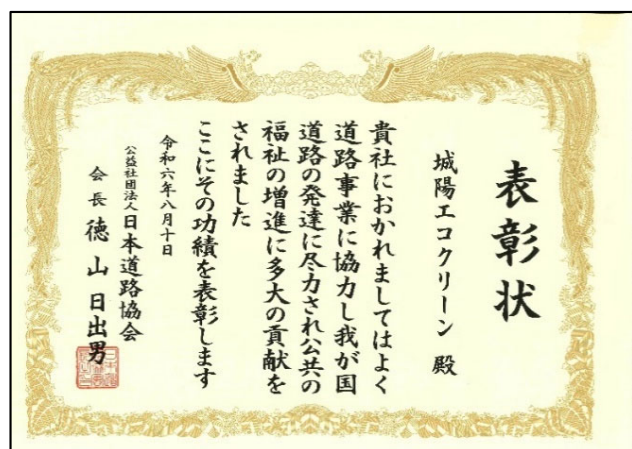 表彰状
城陽エコクリーン 殿
貴社におかれましてはよく
道路事業に協力し我が国
道路の発達に尽力され公共の
福祉の増進に多大の貢献を
されました
ここにその功績を表彰します
令和六年八月十日
公益社団法人日本道路協会
会長 徳山日出男